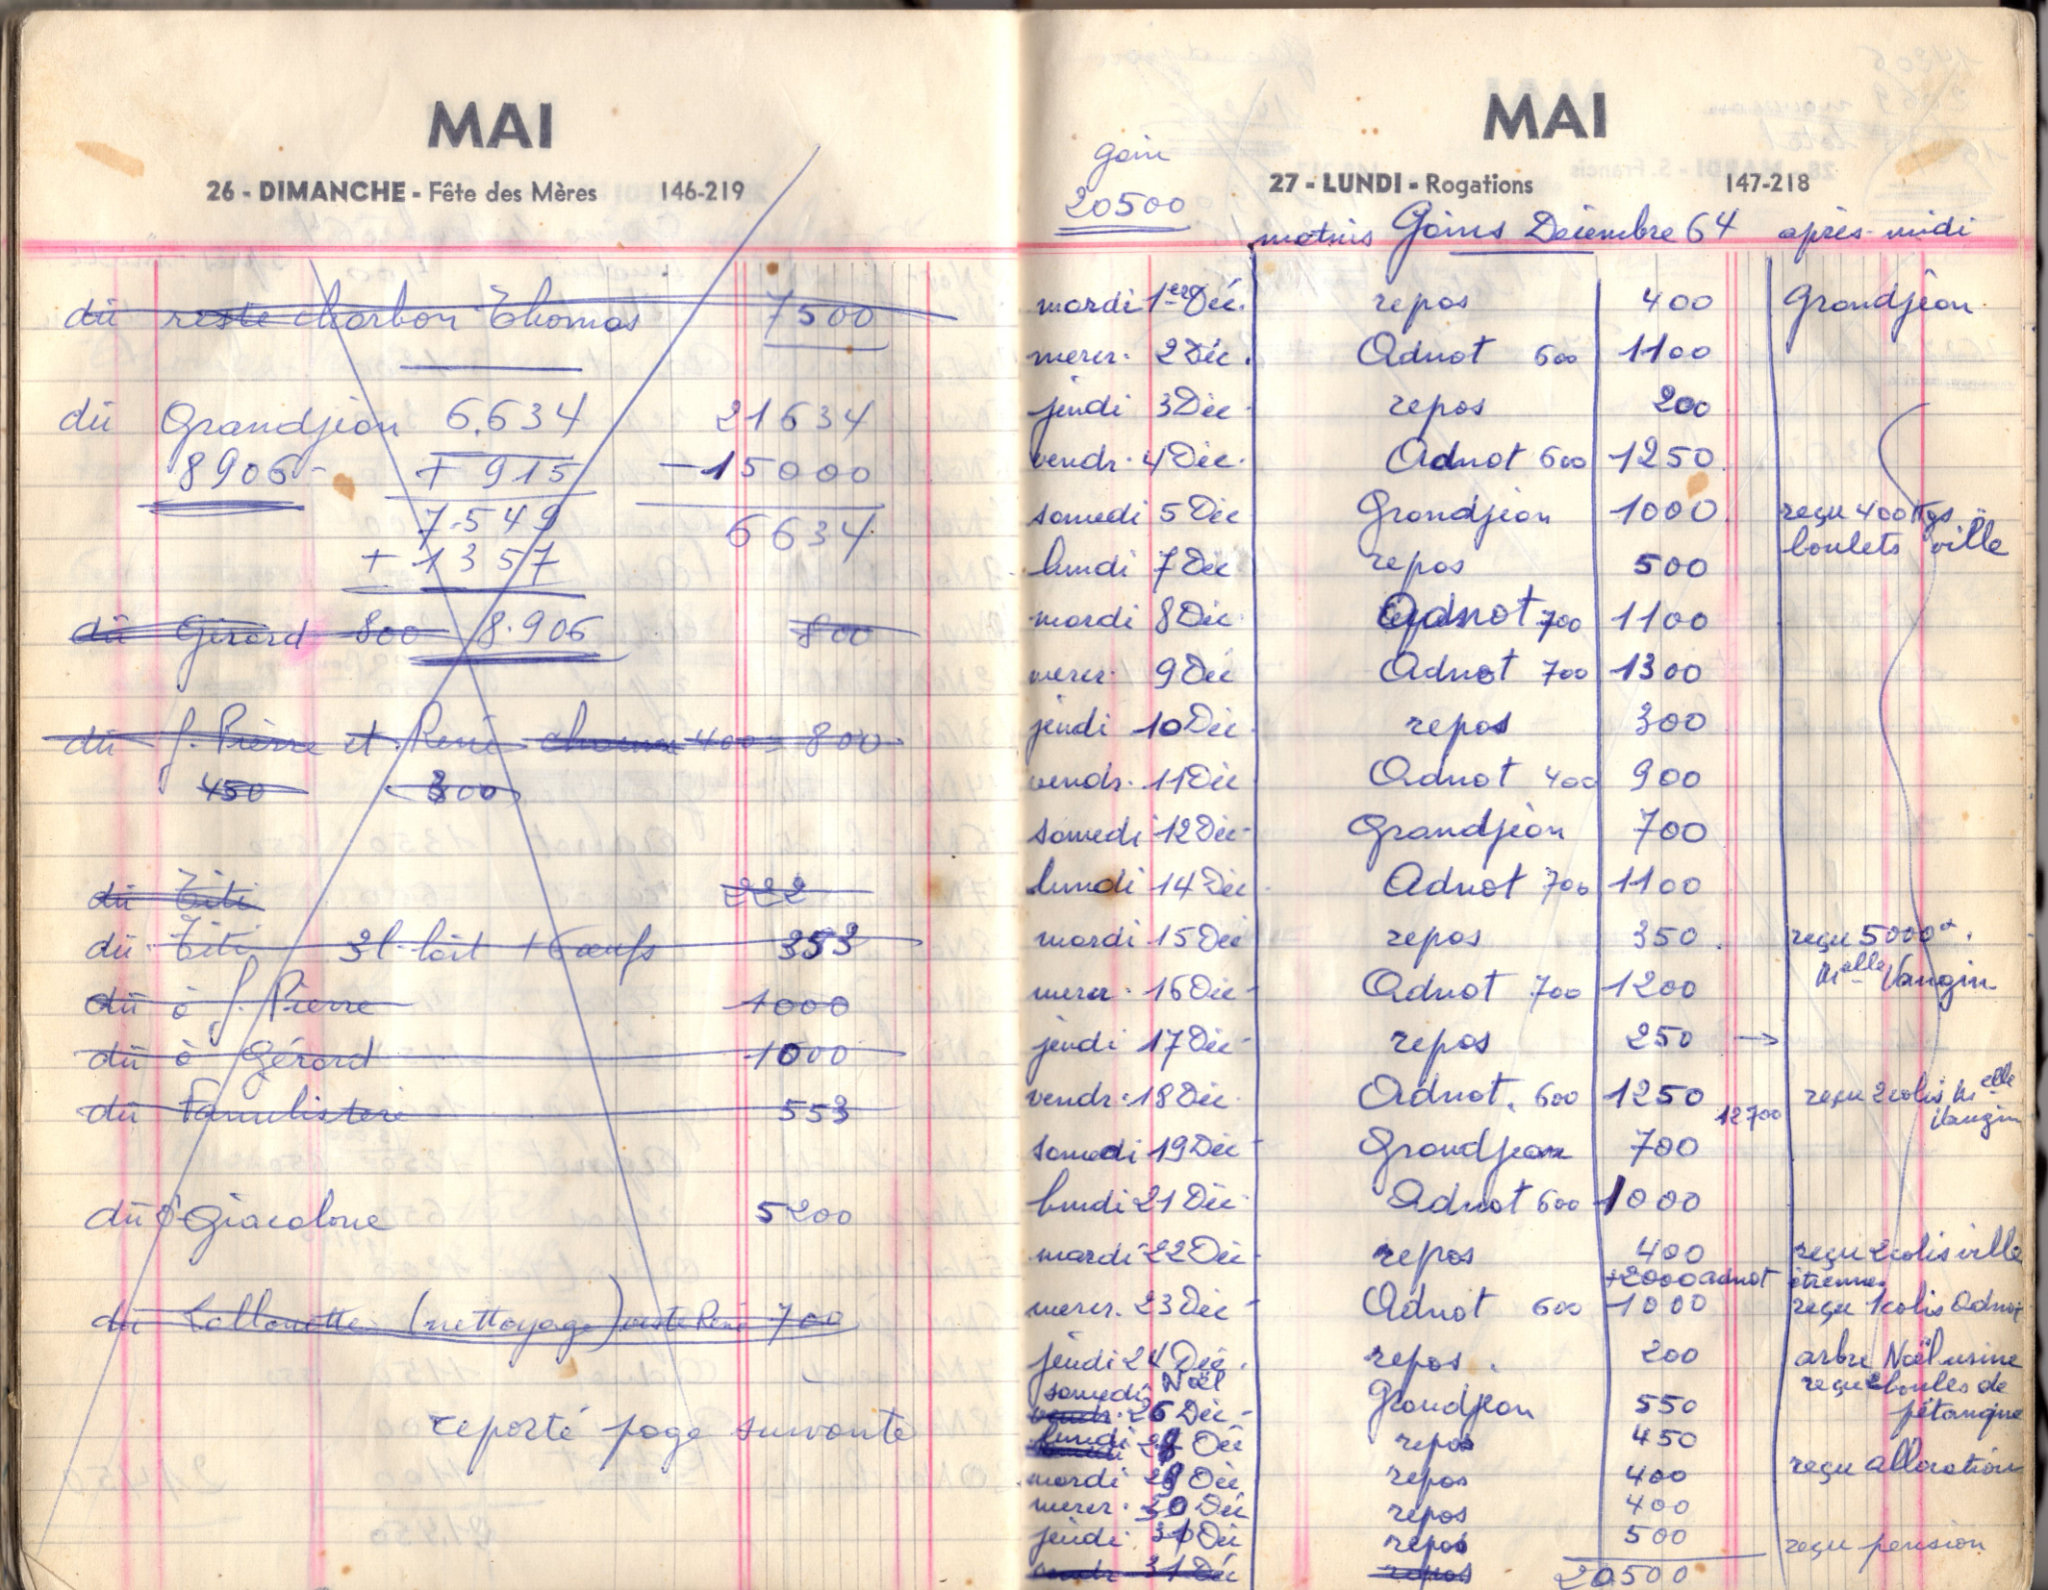 MAI
26 - DIMANCHE - Fête des Mères 146-219
dû reste charbon Thomas 7500
dû Grandjean 6.634 21634
8906 - + 915 - 15000
7.549 6634
+ 1357
dû Gérard 800 8.906 800
dû J. Pierre et René 400 = 800
450 300
dû Titi 222
dû Titi 3l lait + 6 œufs 353
dû à J. Pierre 1000
dû à Gérard 1000
dû Familistère 553
dû à Giacolone 5200
dû Lallouette (nettoyage) reste René 700
reporté page suivante
MAI
gain
20500
27 - LUNDI - Rogations 147-218
matins Gains Décembre 64 après-midi
mardi 1er Déc. repos 400 Grandjean
mercr. 2 Déc. Adnot 600 1100
jeudi 3 Déc. repos 200
vendr. 4 Déc. Adnot 600 1250
samedi 5 Déc Grandjean 1000 reçu 400 Kgs
boulets ville
lundi 7 Déc repos 500
mardi 8 Déc Adnot 700 1100
mercr. 9 Déc Adnot 700 1300
jeudi 10 Déc repos 300
vendr. 11 Déc Adnot 400 900
samedi 12 Déc - Grandjean 700
lundi 14 Déc Adnot 700 1100
mardi 15 Déc repos 350 . reçu 5000
Melle Vaugin
mercr. 16 Déc - Adnot 700 1200
jeudi 17 Déc - repos 250 →
vendr. 18 Déc. Adnot. 600 1250 12700 reçu 2 colis Melle
Vaugin
samedi 19 Déc - Grandjean 700
lundi 21 Déc Adnot 600 1000
mardi 22 Déc - repos 400 reçu 2 colis ville
+2000 adnot étrennes
mercr. 23 Déc - Adnot 600 1000 reçu 1 colis Adnot
jeudi 24 Déc. repos. 200 arbre Noël usine
Noël reçu boules de
samedi vendr. 26 Déc - Grandjean 550 pétanque
lundi 28 Déc repos 450
mardi 29 Déc repos 400 reçu allocation
mercr. 30 Déc repos 400
jeudi 31 Déc repos 500 reçu pension
vendr 31 Déc repos 20500